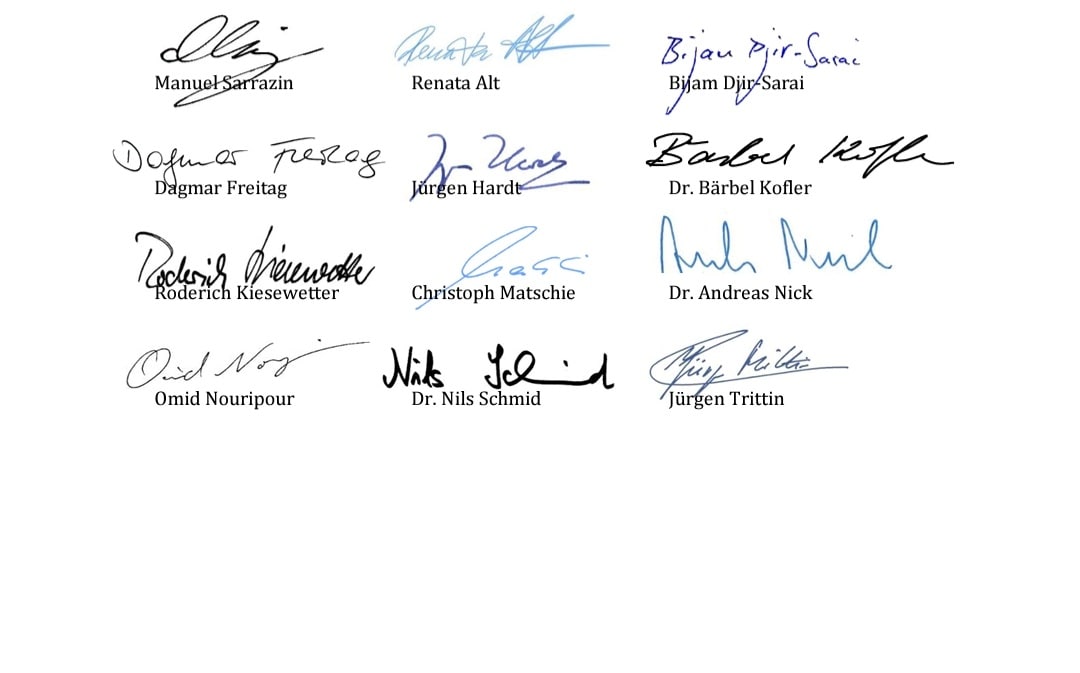 Manuel Sarrazin
Renata Alt
Renata Alt
Bijan Djir-Sarai
Bijam Djir-Sarai
Dagmar Freitag
Dagmar Freitag
Jürgen Hardt
Bärbel Kofler
Dr. Bärbel Kofler
Roderich Kiesewetter
Roderich Kiesewetter
Christoph Matschie
Dr. Andreas Nick
Omid Nouripour
Nils Schmid
Dr. Nils Schmid
Jürgen Trittin
Jürgen Trittin